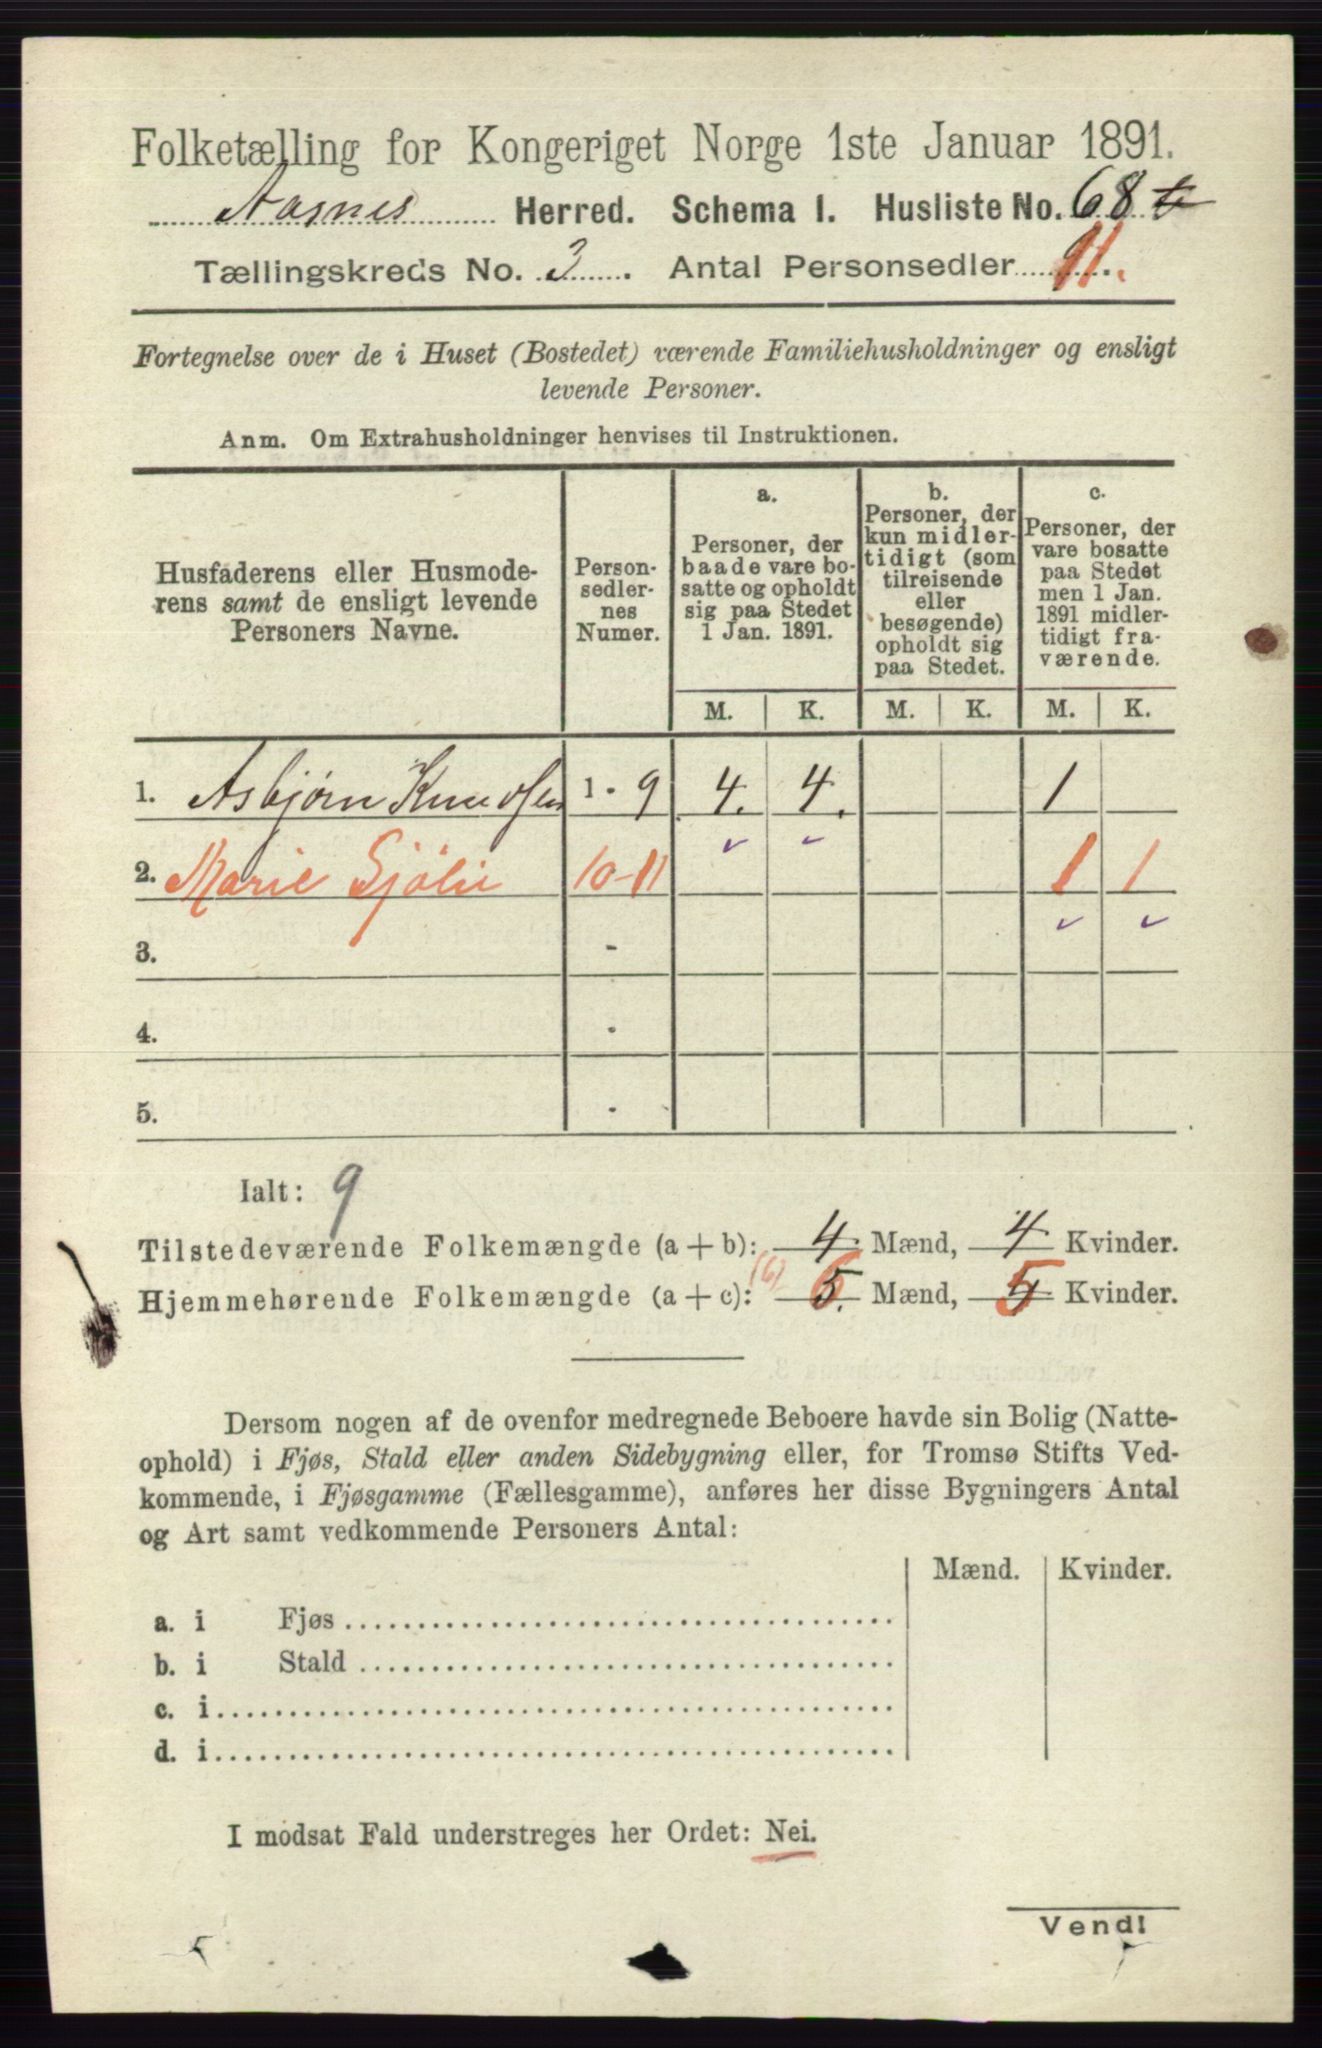 Folketælling for Kongeriget Norge 1ste Januar 1891.
Aasnes Herred. Schema I. Husliste No. 68
Tællingskreds No. 3. Antal Personsedler 11.
Fortegnelse over de i Huset (Bostedet) værende Familiehusholdninger og ensligt
levende Personer.
Anm. Om Extrahusholdninger henvises til Instruktionen.
Husfaderens eller Husmode-
rens samt de ensligt levende
Personers Navne.
Person-
sedler-
nes
Numer.
a.
Personer, der
baade vare bo-
satte og opholdt
sig paa Stedet
1 Jan. 1891.
b.
Personer, der
kun midler-
tidigt (som
tilreisende
eller
besøgende)
opholdt sig
paa Stedet.
c.
Personer, der
vare bosatte
paa Stedet
men 1 Jan.
1891 midler-
tidigt fra-
værende.
M. K. M. K. M. K.
1. Asbjørn Knudsen 1 - 9 4. 4. 1
2. Marie Sjölie 10-11 1 1
3. -
4. -
5. -
Ialt: 9
Tilstedeværende Folkemængde (a + b): 4 Mænd, 4 Kvinder.
Hjemmehørende Folkemængde (a + c): (6) 5. 6 Mænd, 4 5 Kvinder.
Dersom nogen af de ovenfor medregnede Beboere havde sin Bolig (Natte-
ophold) i Fjøs, Stald eller anden Sidebygning eller, for Tromsø Stifts Ved-
kommende, i Fjøsgamme (Fællesgamme), anføres her disse Bygningers Antal
og Art samt vedkommende Personers Antal:
Mænd. Kvinder.
a. i Fjøs
b. i Stald
c. i
d. i
I modsat Fald understreges her Ordet: Nei.
Vend!